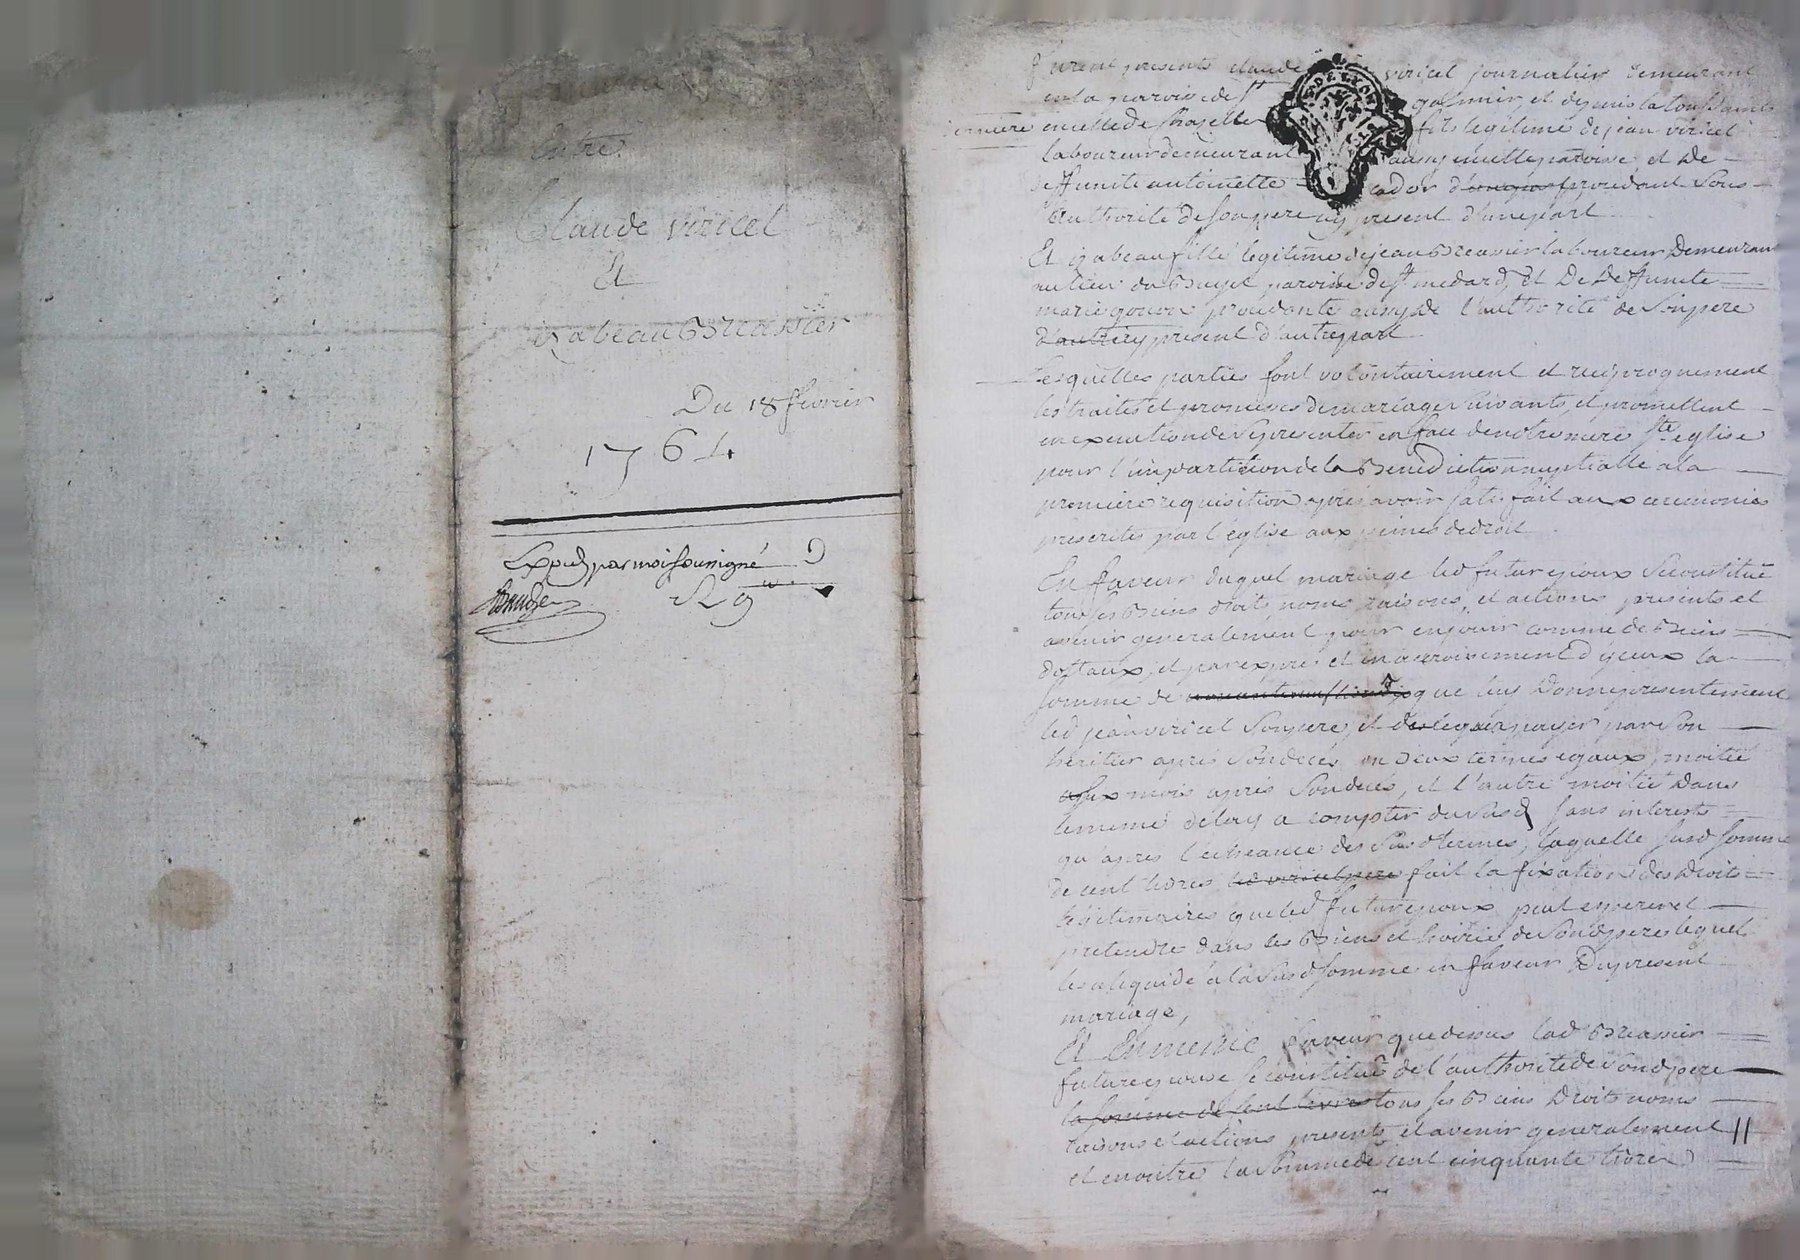 Entre
Claude viricel
Et
Izabeau Breassier
Du 18 fevrier
1764
Exped par moi soussigné
furent presents claude viricel journalier demeurant
en la paroisse de St galmier, et depuis la toussaint
derniere en celle de fils legitime de jean viricel
laboureur demeurant aussy en cette paroisse et De
deffunite antoinette cador procedant sous
l'authorité de son pere icy present d'une part
Et izabeau fille legitime de jean Breassier laboureur Demeurant
au lieu du paroisse de st medard, et De Deffunite
marie gouon procedante aussy de l'authorité de son pere
icy present d'autre part
Lesquelles parties font volontairement et reciproquement
les traites et promesses de mariage suivants, et promettent
en execution de se presenter en face de notre mere ste eglise
pour l'impartition de la Benediction nuptialle a la
premiere requisition apres avoir satisfait aux ceremonies
prescrites par l'eglise aux peines de droit
En ffaveur duquel mariage led futur epoux se constitue
tous ses Biens droits noms raisons, et actions presents et
avenir generalement pour en jouir comme de Biens
dottaux, et par exprés et en accroisement d'yceux la
somme de que luy donne presentement
led jean viricel son pere, et payer par son
heritier aprés son decés en deux termes egaux, moitié
six mois aprés son decés, et l'autre moitié dans
le meme delay a compter du susd sans interests
qu'apres l'echeance des susd termes, laquelle susd somme
de cent livres led viricel pere fait la fixation des Droits
legitimaires que led futur epoux peut esperer et
pretendre dans les Biens et hoirie de sond pere lequel
les a liquidé a la susd somme en faveur Du present
mariage,
Et En meme faveur que dessus lad Breassier
future epouse se constitue de l'authorité de sond pere
la somme de cent livres tous ses Biens Droits noms
raisons et actions presents et avenir generalement
et en outre la somme de cent cinquante livres